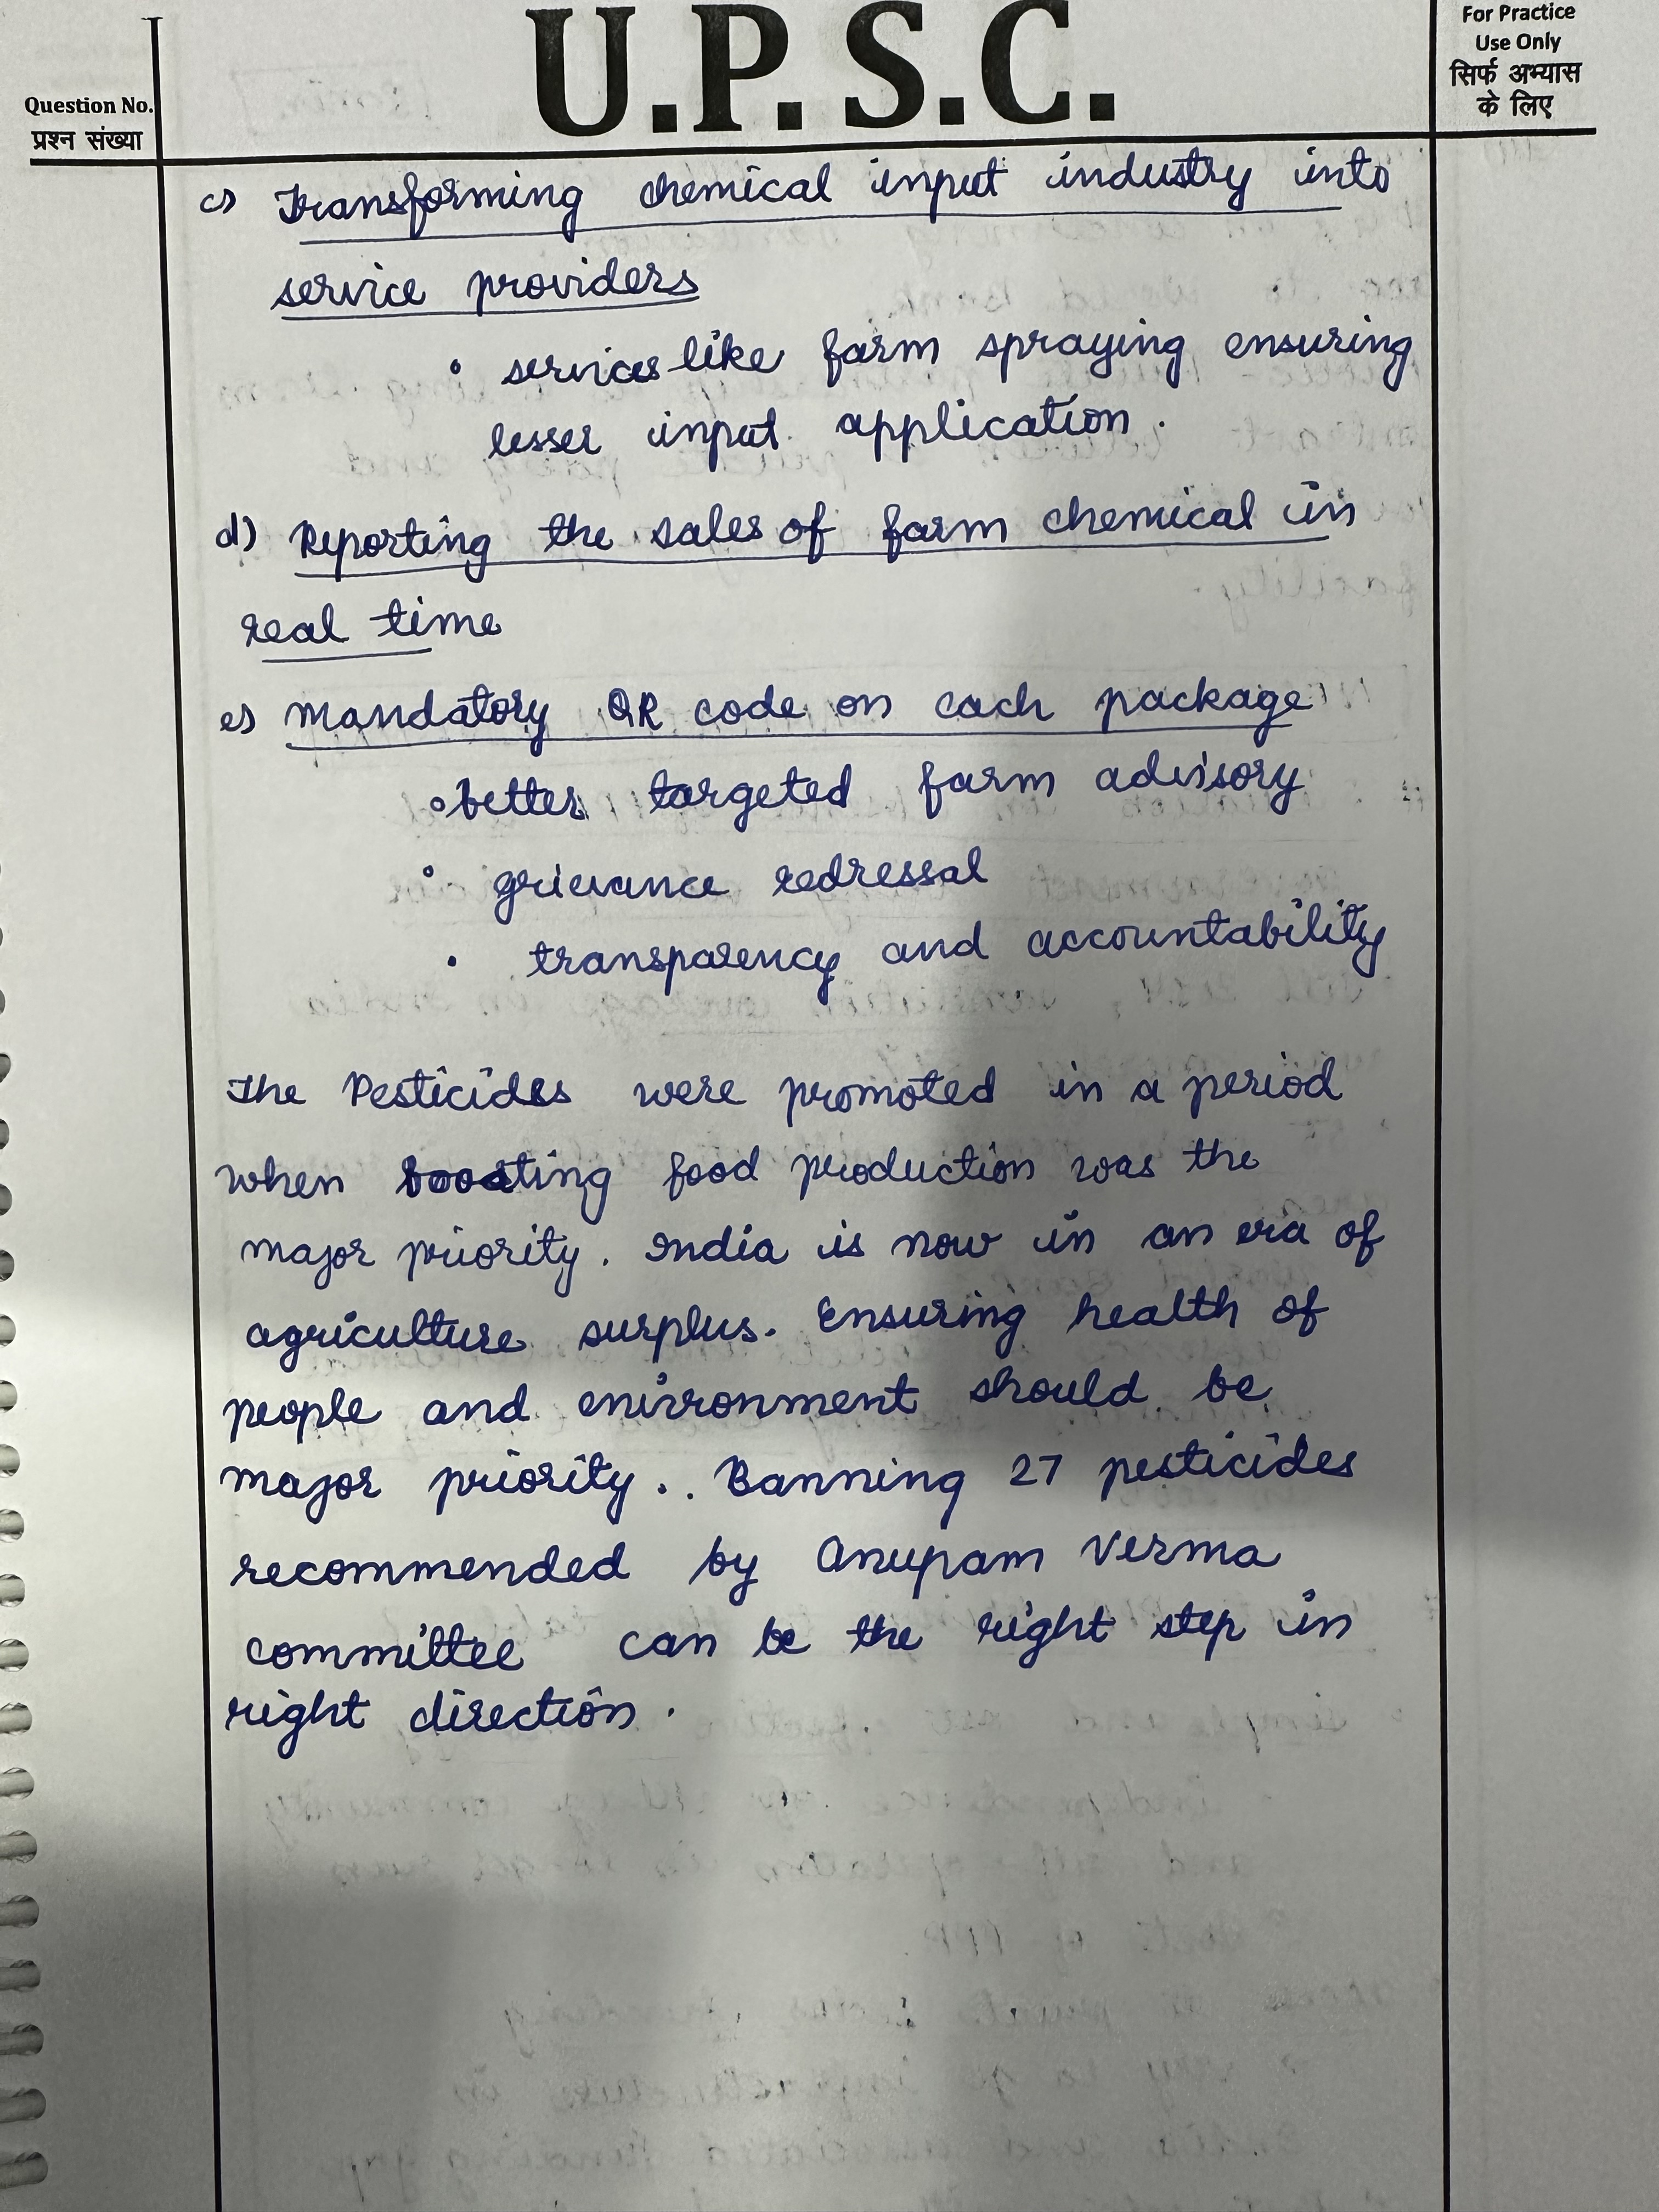 U.P.S.C.
For Practice
Use Only
सिर्फ अभ्यास
के लिए
Question No.
प्रश्न संख्या
c) Transforming chemical input industry into
service providers
• services like farm spraying ensuring
lesser input application.
d) Reporting the sales of farm chemical in
real time
e) Mandatory QR code on each package
• better targeted farm advisory
• grievance redressal
• transparency and accountability
The Pesticides were promoted in a period
when boosting food production was the
major priority. India is now in an era of
agriculture surplus. Ensuring health of
people and environment should be
major priority.. Banning 27 pesticides
recommended by Anupam Verma
committee can be the right step in
right direction.